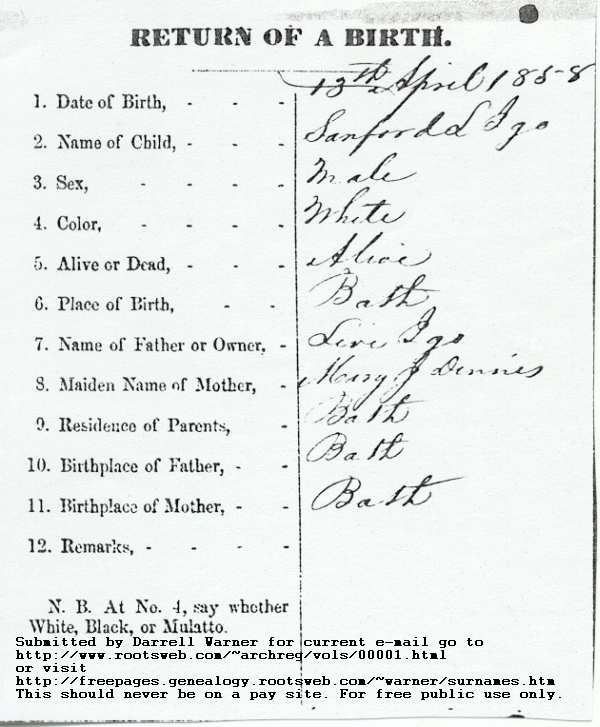 RETURN OF A BIRTH.
1. Date of Birth, - - - 13th April 1858
2. Name of Child, - - - Sanford L Igo
3. Sex, - - - - Male
4. Color, - - - - White
5. Alive or Dead, - - - Alive
6. Place of Birth, - - Bath
7. Name of Father or Owner, - Levi Igo
8. Maiden Name of Mother, - Mary J Dennis
9. Residence of Parents, - Bath
10. Birthplace of Father, - - Bath
11. Birthplace of Mother, - - Bath
12. Remarks, - - - -
N. B. At No. 4, say whether
White, Black, or Mulatto.
Submitted by Darrell Warner for current e-mail go to
http://www.rootsweb.com/~archreg/vols/00001.html
or visit
http://freepages.genealogy.rootsweb.com/~warner/surnames.htm
This should never be on a pay site. For free public use only.